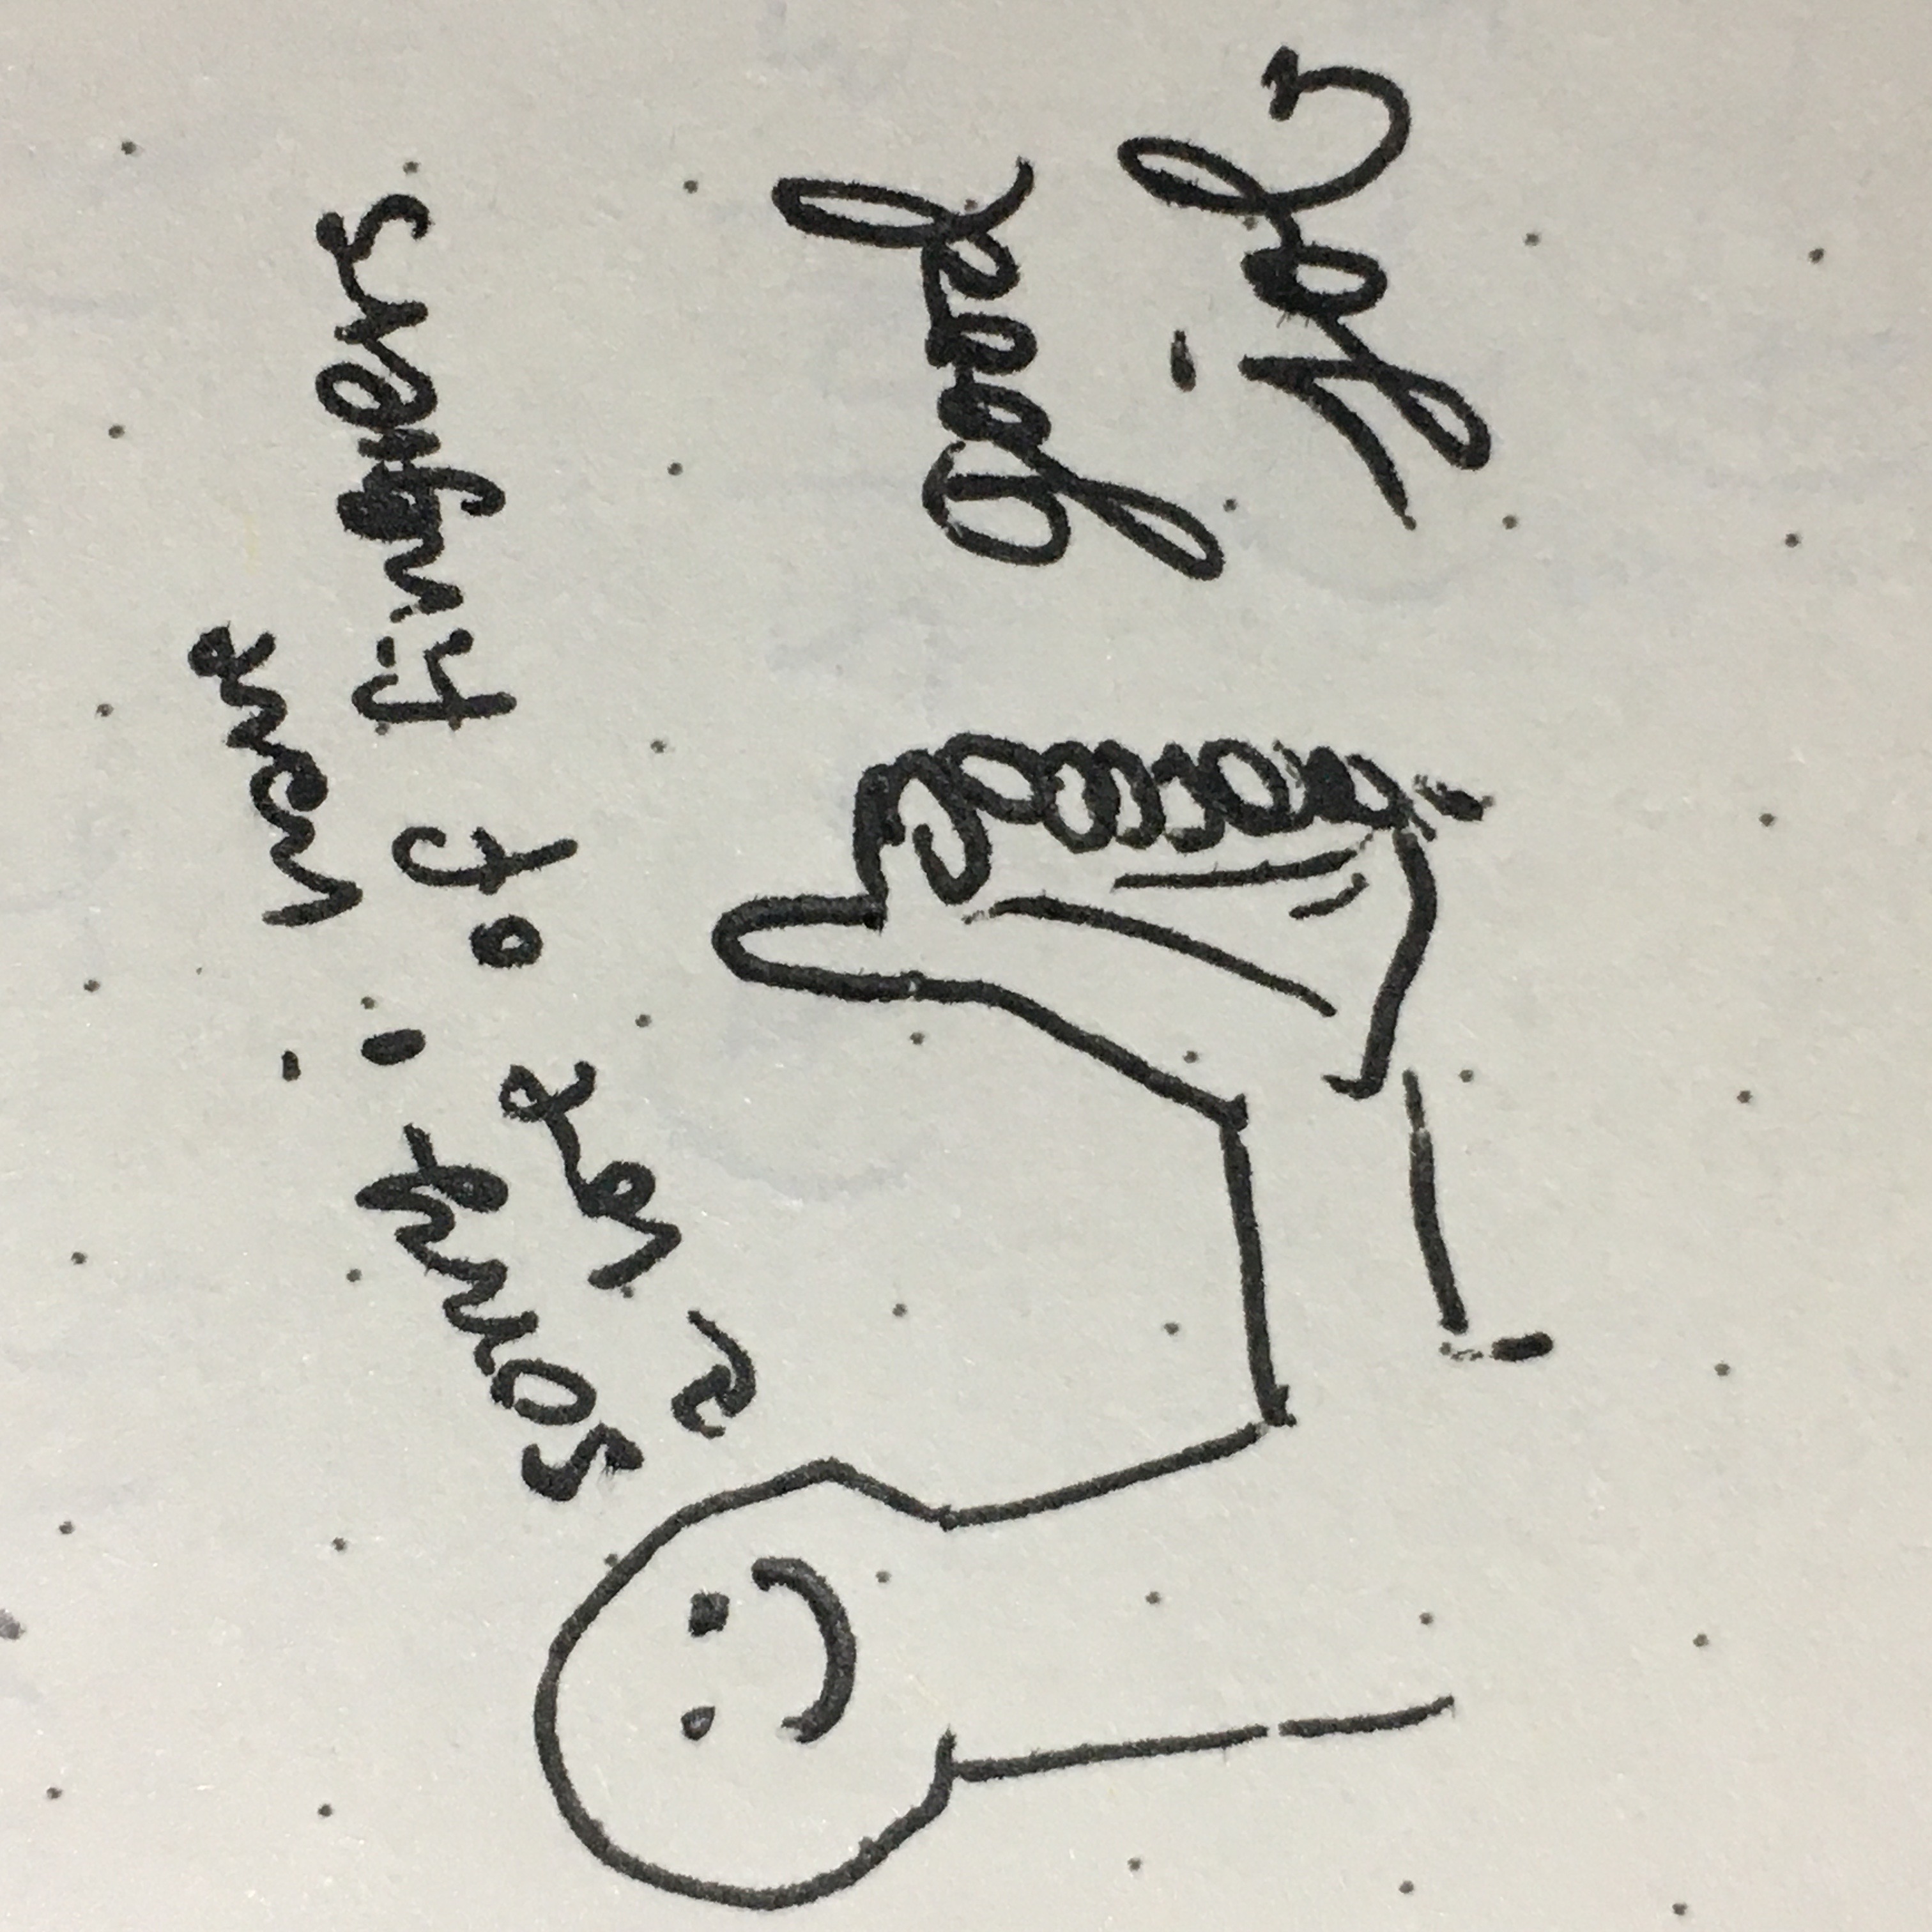 sorry i have
a lot of fingers
good
job